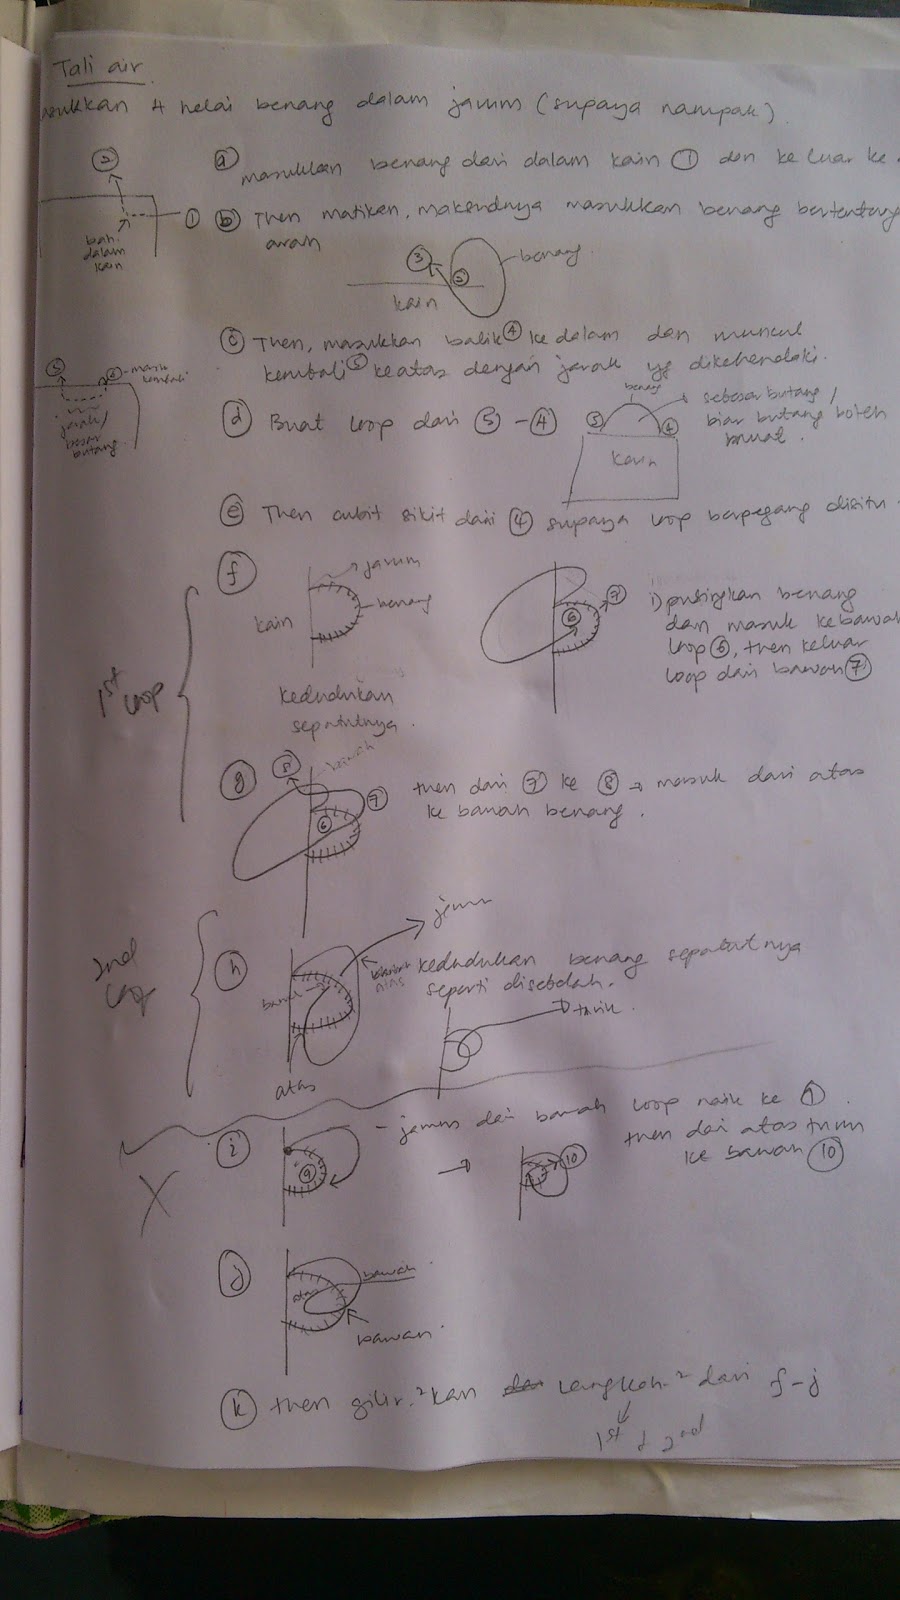 Tali air
asukkan 4 helai benang dalam jarum (supaya nampak).
②
①
bah. dalam kain
ⓐ masukkan benang dari dalam kain ① dan keluar ke
ⓑ Then matikan, maksudnya masukkan benang bertentang
arah
③ ② benang.
kain
ⓒ Then, masukkan balik ④ ke dalam dan muncul
kembali ⑤ keatas dengan jarak yg dikehendaki.
⑤ ④ masuk kembali
jarak/
besar
butang
ⓓ Buat loop dari ⑤ - ④
benang
⑤ ④
kain
sebesar butang/
biar butang boleh
muat.
ⓔ Then cubit sikit dari ④ supaya loop berpegang disitu
1st loop
ⓕ
jarum
benang
kain
kedudukan
sepatutnya.
⑥ ⑦
i) pusingkan benang
dan masuk kebawah
loop ⑥, then keluar
loop dari bawah ⑦
ⓖ ⑧ bawah
⑦
⑥
then dari ⑦ ke ⑧ → masuk dari atas
ke bawah benang.
2nd loop
ⓗ
jarum
atas
kedudukan benang sepatutnya
seperti disebelah.
tarik.
atas
X
ⓘ - jarum dari bawah loop naik ke ⑨.
then dari atas turun
ke bawah ⑩
⑨ → ⑩
ⓙ
bawah
atas
bawah.
ⓚ then gilir²kan langkah² dari f-j
1st & 2nd